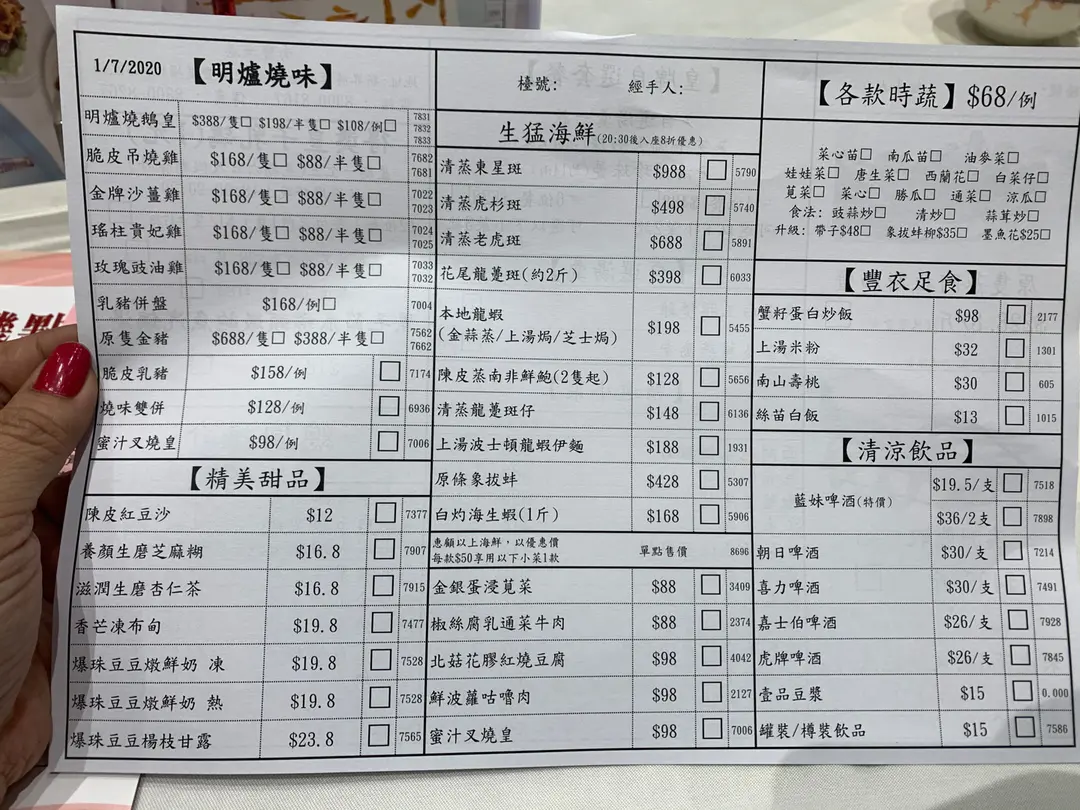 1/7/2020 【明爐燒味】
明爐燒鵝皇 $388/隻□ $198/半隻□ $108/例□ 7831 7832 7833
脆皮吊燒雞 $168/隻□ $88/半隻□ 7682 7681
金牌沙薑雞 $168/隻□ $88/半隻□ 7022 7023
瑤柱貴妃雞 $168/隻□ $88/半隻□ 7024 7025
玫瑰豉油雞 $168/隻□ $88/半隻□ 7033 7032
乳豬併盤 $168/例□ 7004
原隻金豬 $688/隻□ $388/半隻□ 7562 7662
脆皮乳豬 $158/例 □ 7174
燒味雙併 $128/例 □ 6936
蜜汁叉燒皇 $98/例 □ 7006
【精美甜品】
陳皮紅豆沙 $12 □ 7377
養顏生磨芝麻糊 $16.8 □ 7907
滋潤生磨杏仁茶 $16.8 □ 7915
香芒凍布甸 $19.8 □ 7477
爆珠豆豆燉鮮奶 凍 $19.8 □ 7528
爆珠豆豆燉鮮奶 熱 $19.8 □ 7528
爆珠豆豆楊枝甘露 $23.8 □ 7565
檯號: 經手人:
生猛海鮮(20:30後入座8折優惠)
清蒸東星斑 $988 □ 5790
清蒸虎杉斑 $498 □ 5740
清蒸老虎斑 $688 □ 5891
花尾龍躉斑(約2斤) $398 □ 6033
本地龍蝦
(金蒜蒸/上湯焗/芝士焗) $198 □ 5455
陳皮蒸南非鮮鮑(2隻起) $128 □ 5656
清蒸龍躉斑仔 $148 □ 6136
上湯波士頓龍蝦伊麵 $188 □ 1931
原條象拔蚌 $428 □ 5307
白灼海生蝦(1斤) $168 □ 5906
惠顧以上海鮮，以優惠價
每款$50享用以下小菜1款 單點售價 8696
金銀蛋浸莧菜 $88 □ 3409
椒絲腐乳通菜牛肉 $88 □ 2374
北菇花膠紅燒豆腐 $98 □ 4042
鮮波蘿咕嚕肉 $98 □ 2127
蜜汁叉燒皇 $98 □ 7006
【各款時蔬】$68/例
菜心苗□ 南瓜苗□ 油麥菜□
娃娃菜□ 唐生菜□ 西蘭花□ 白菜仔□
莧菜□ 菜心□ 勝瓜□ 通菜□ 涼瓜□
食法: 豉蒜炒□ 清炒□ 蒜茸炒□
升級: 帶子$48□ 象拔蚌柳$35□ 墨魚花$25□
【豐衣足食】
蟹籽蛋白炒飯 $98 □ 2177
上湯米粉 $32 □ 1301
南山壽桃 $30 □ 605
絲苗白飯 $13 □ 1015
【清涼飲品】
藍妹啤酒(特價) $19.5/支 □ 7518
$36/2支 □ 7898
朝日啤酒 $30/支 □ 7214
喜力啤酒 $30/支 □ 7491
嘉士伯啤酒 $26/支 □ 7928
虎牌啤酒 $26/支 □ 7845
壹品豆漿 $15 □ 0.000
罐裝/樽裝飲品 $15 □ 7586